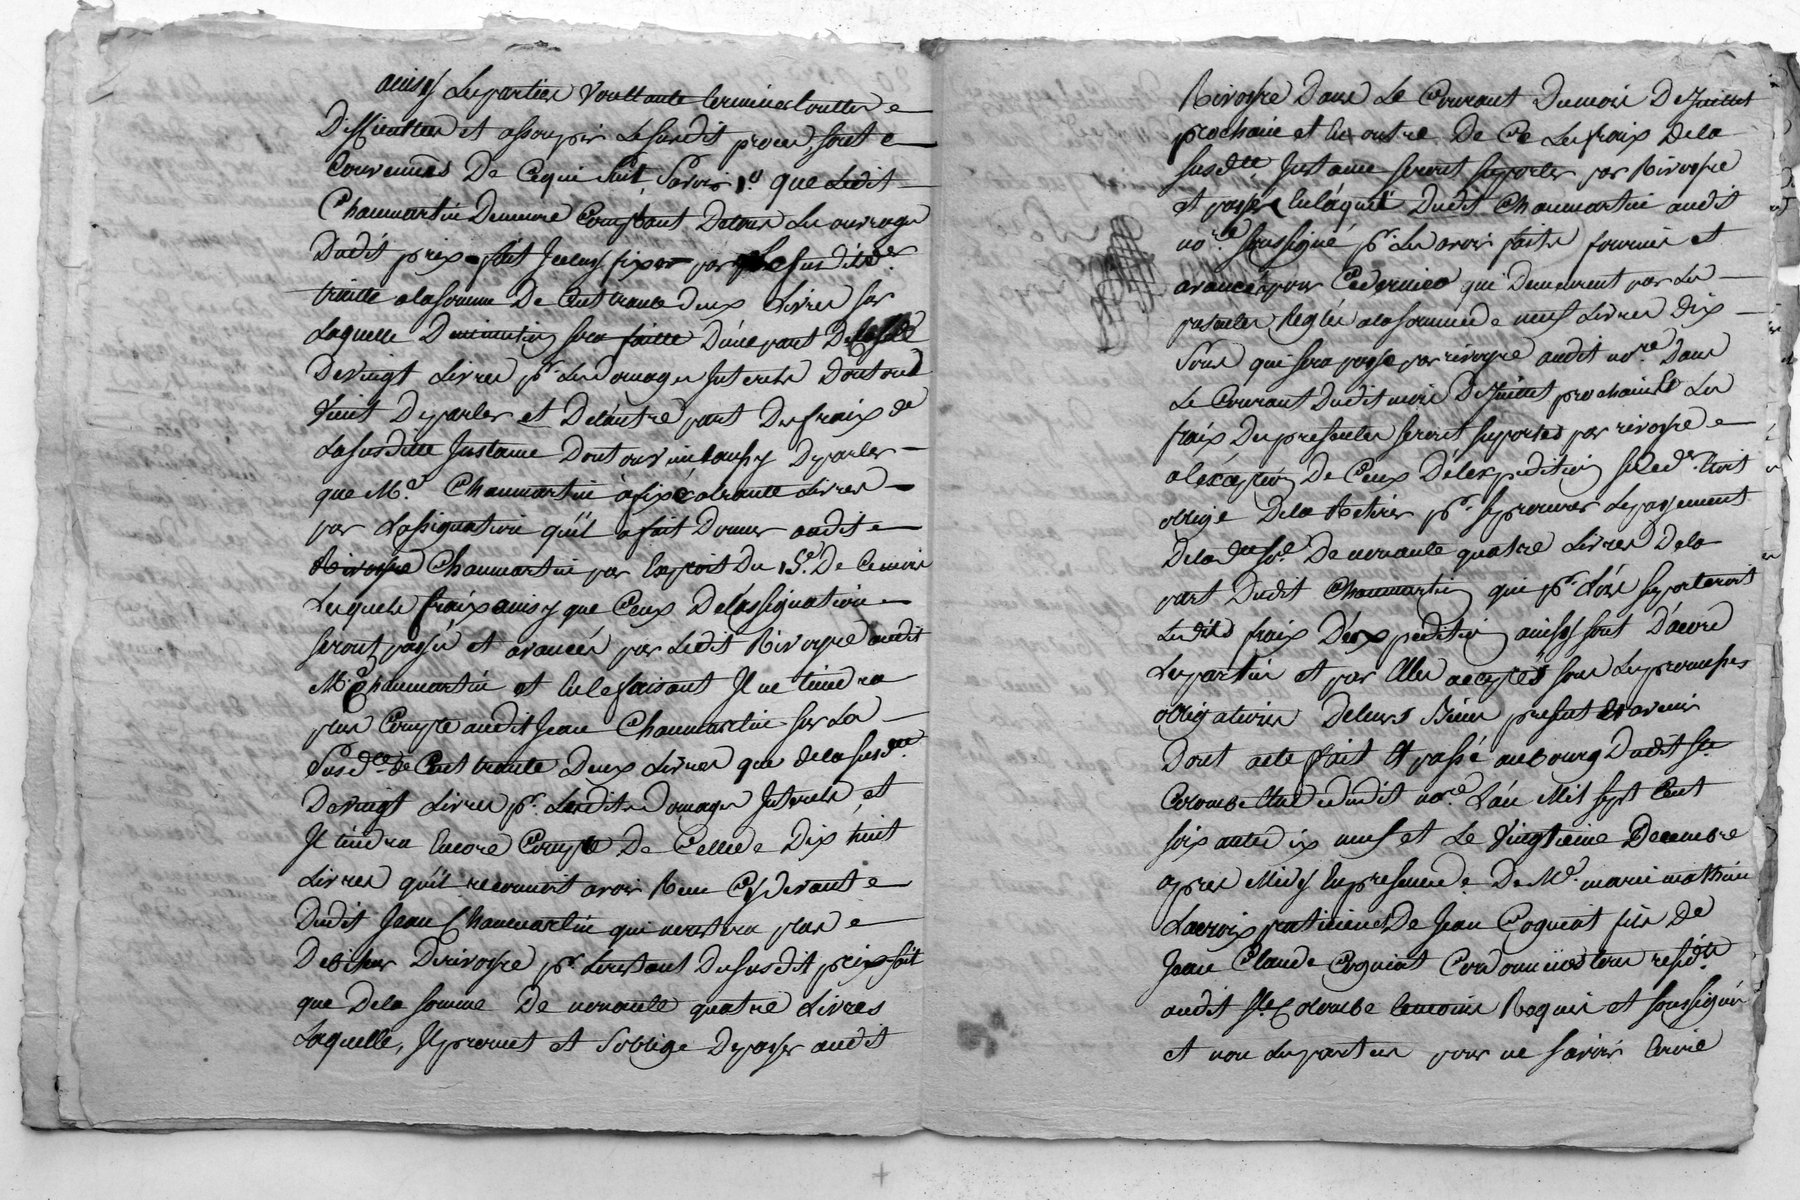 ainsy Les parties Voullante terminer touttes
Difficultes et assoupir Le susdit procez sont
Convennües De Cequi Suit, Savoir 1.° que Ledit
Chaumartin Demeure Comptant De tous Les ouvrages
Dudit prix-fait Iceluy fixer par Le susdit
traitté a la somme De Cent trante deux Livres sur
Laquelle Diminution sera faitte D'une part De la
De vingt Livres pr. Les Domages Interets Dont on
Vient De parler et De l'autre part Des fraix de
La susditte Instance Dont on vient aussy De parler
que Me. Chaumartin a fixé a trante Livres
par L'assignation qu'il a fait Donner audit
Rivoyre Chaumartin par Exploit Du 15.e De Ce mois
Lesquels fraix ainsy que Ceux De l'assignation
seront payés et avancés par Ledit Rivoyre audit
Me Chaumartin et En le faisant Il ne tiendra
plus Compte audit Jean Chaumartin sur La
Susd.te de Cent trante Deux Livres que de la susd.tte
De vingt Livres pr. Lesdits Domages Interets et
Il tiendra Encore Compte De Celle de Dix huit
Livres qu'il reconnoit avoir Recu Cy Devant
Dudit Jean Chaumartin qui ne restera plus
Debiteur De rivoyre pr. Le restant Du susdit prix fait
que De la somme De nonante quatre Livres
Laquelle, Il promet et S'oblige De payer audit
Rivoyre Dans Le Courant Du mois De Juillet
prochain et En outre De Ce Les fraix De la
susd.tte Instance seront suportes par Rivoyre
et payés En l'aquit Dudit Chaumartin audit
no.re soussigné pr. Les avoir faits fournis et
avancés pour Ce dernier que Demeurent par Les
presentes Reglés a la somme de neuf Livres Dix
Sous qui sera payé par rivoyre audit no.re Dans
Le Courant Dudit mois De Juillet prochain Et Les
fraix Des presentes seront suportés par rivoyre
a l'exception De Ceux De l'expedition
obligé De la Retirer pr. se procurer Le payement
De la d.tte so.e De nonante quatre Livres De la
part Dudit Chaumartin qui pr. Lors suporteroit
Lesdits fraix D'expedition ainsy sont D'acord
Les parties et par Elles acceptés sous Les promesses
obligations De leurs Biens present et avenir
Dont acte fait Et passé au bourg Dudit Ste
Colombe Etude Dudit no.re L'an Mil sept Cent
soixante dix neuf et Le Vingtieme Decembre
apres Midy En presence De Me. marie mathieu
Lacroix praticien et De Jean Cogniat fils de
Jean Claude Cogniat Cordonnier tous resid.ts
audit Ste Colombe temoins Requis et soussignés
et non Les parties pour ne Savoir Ecrire